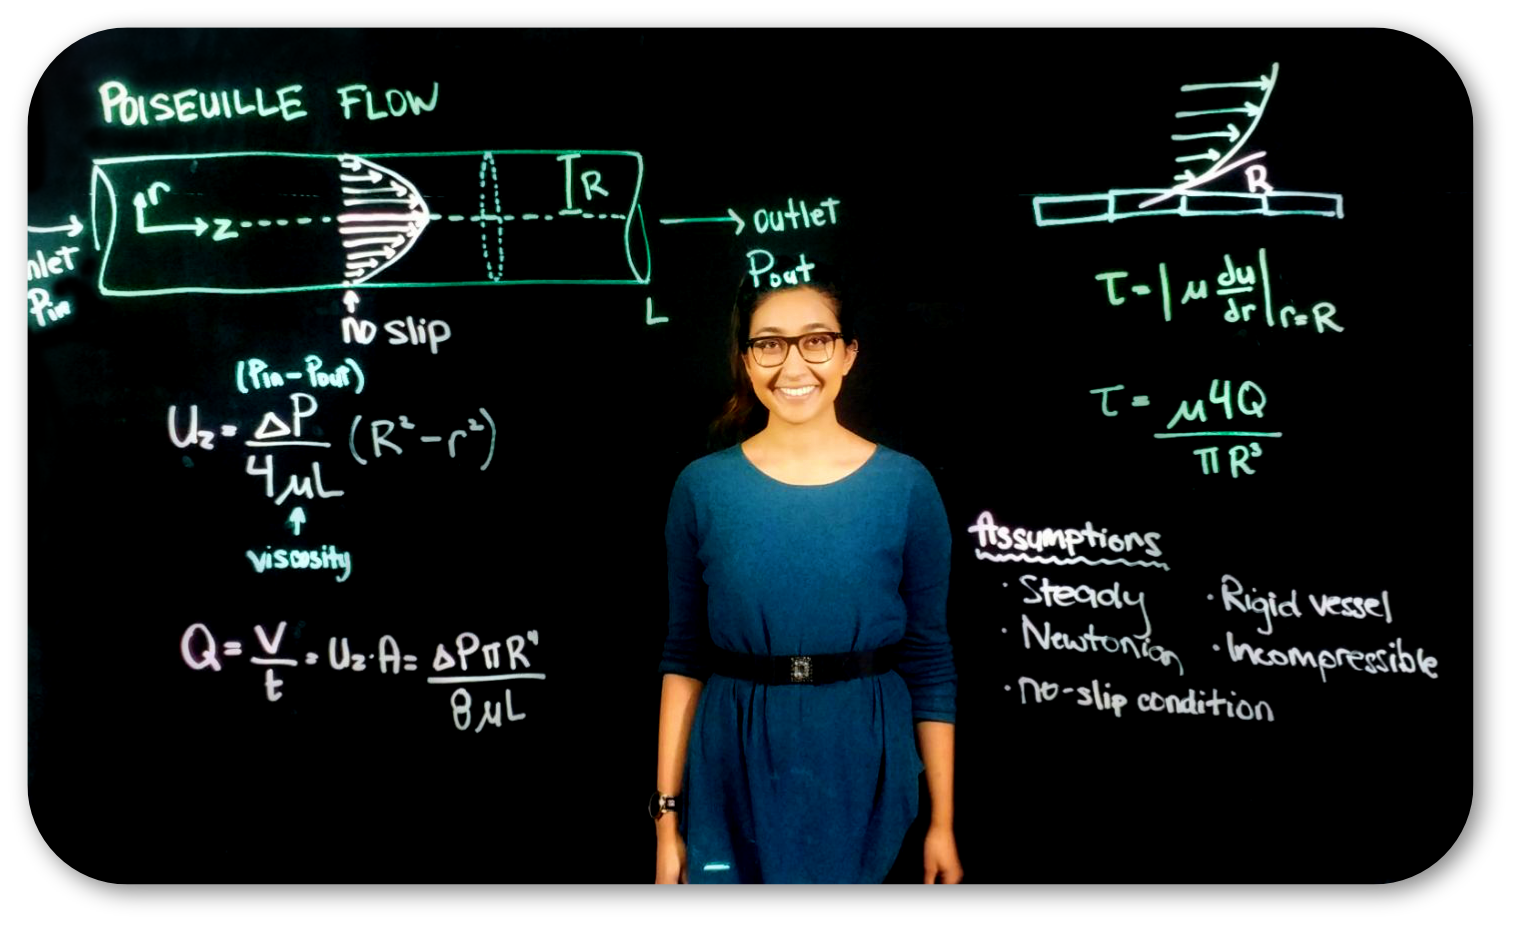 POISEUILLE FLOW
r
z
R
nlet
Pin
→ outlet
Pout
L
no slip
(Pin-Pout)
Uz = ΔP / 4μL (R² - r²)
viscosity
Q = V / t = Uz · A = ΔPπR⁴ / 8μL
R
τ = | μ du / dr | r=R
τ = μ4Q / πR³
Assumptions
· Steady
· Newtonian
· no-slip condition
· Rigid vessel
· Incompressible